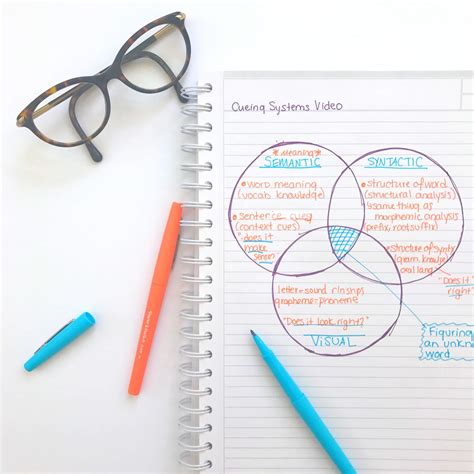 Cueing Systems Video
*Meaning*
SEMANTIC
• word meaning
(vocab knowledge)
• sentence cues
(context cues)
"does it
make
sense?"
SYNTACTIC
• structure of word
(structural analysis)
same thing as
morphemic analysis
prefix, root, suffix
• structure of
(gram.
oral lang.
"Does it
right?"
letter-sound rlnshps
grapheme-phoneme
"Does it look right?"
VISUAL
Figuring
an
word